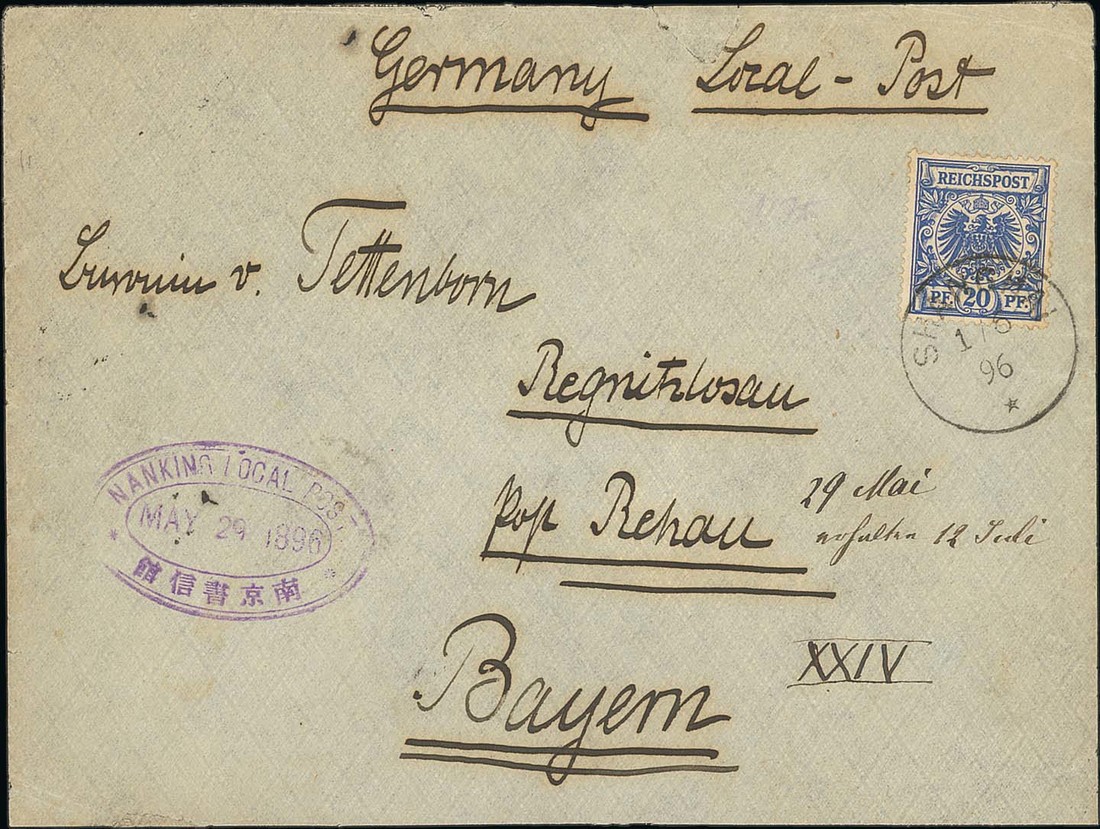 Germany Local-Post
REICHSPOST
PF. 20 PF.
SHANGHAI
1/6
96
v. Tettenborn
Regnitzlosau
Post Rehau
29 Mai
erhalten 12 Juli
NANKING LOCAL POST
MAY 29 1896
館信書京南
XXIV
Bayern